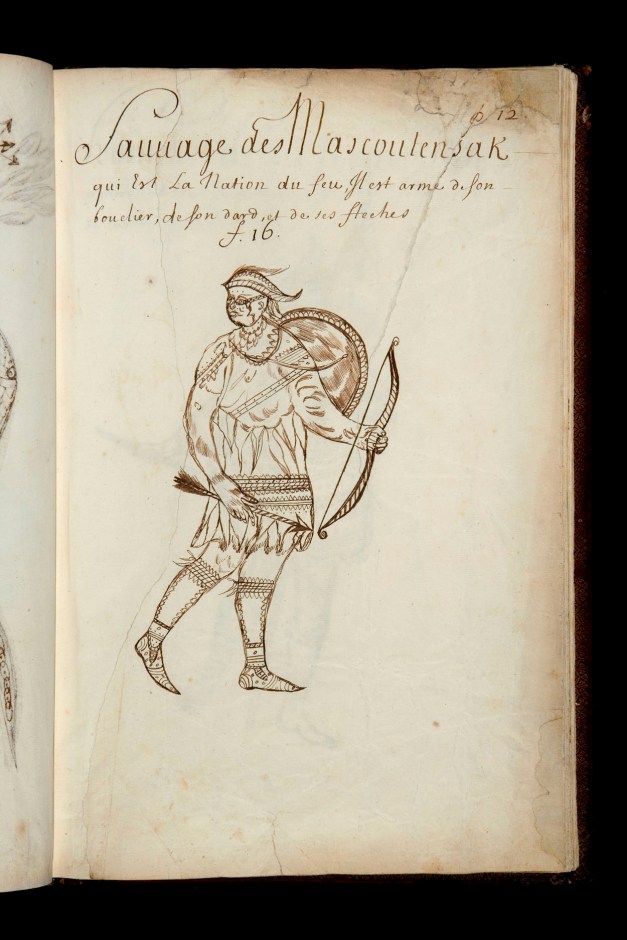 p 12
Sauuage des Mascoutensak
qui Est La Nation du feu, Il est armé de son
bouclier, de son dard, et de ses fleches
f. 16.